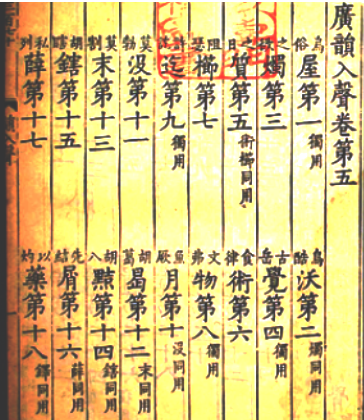 廣韻入聲卷第五
烏俗屋第一獨用
烏酷沃第二燭同用
之燭第三
古岳覺第四獨用
之日質第五術櫛同用
食律術第六
阻瑟櫛第七
文弗物第八獨用
迄第九獨用
魚厥月第十沒同用
莫勃沒第十一
胡葛曷第十二末同用
莫割末第十三
胡八黠第十四鎋同用
胡瞎鎋第十五
先結屑第十六薛同用
私列薛第十七
以灼藥第十八鐸同用